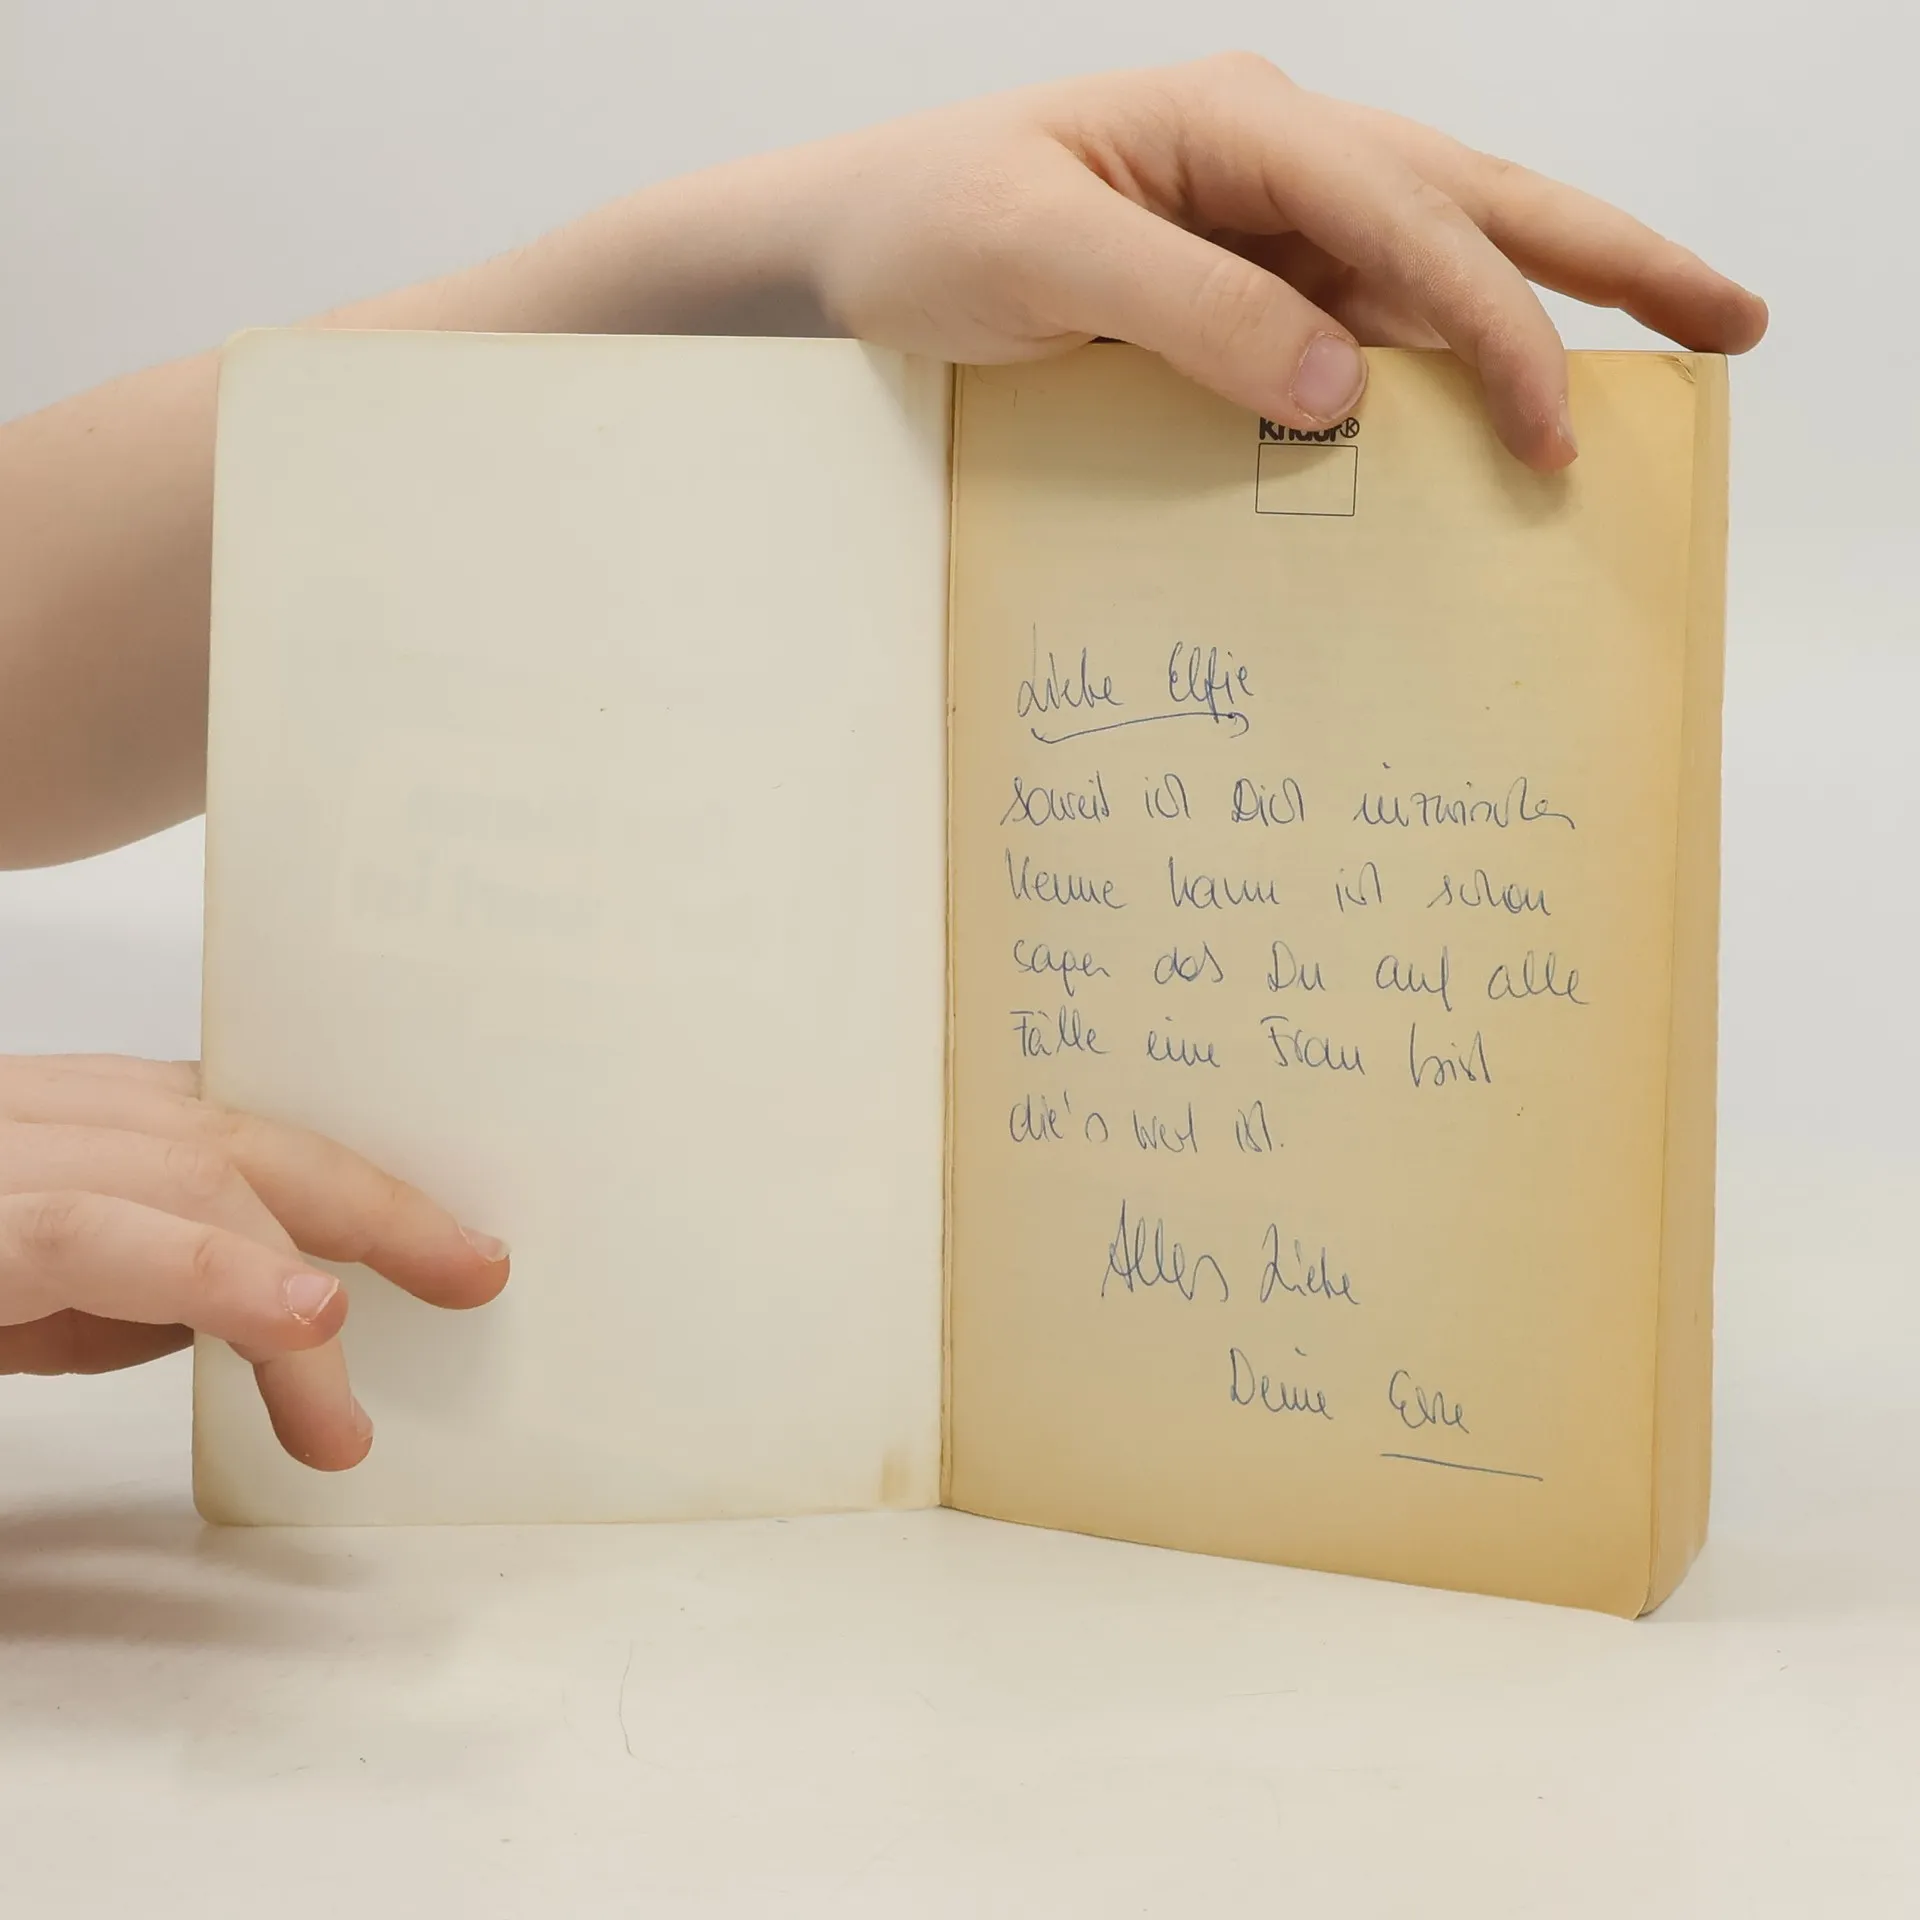 Knaur®
Liebe Elfie
soweit ich Dich inzwischen
kenne kann ich schon
sagen das Du auf alle
Fälle eine Frau bist
die's wert ist.
Alles Liebe
Deine